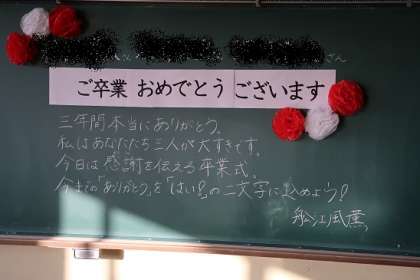 さん
ご卒業 おめでとう ございます
三年間本当にありがとう。
私はあなたたち三人が大すきです。
今日は感謝を伝える卒業式。
今までの「ありがとう」を「はい!」の二文字に込めよう!